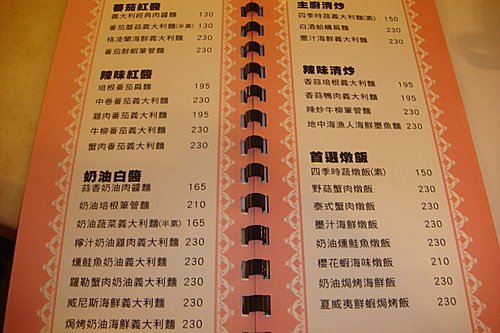 番茄紅醬
義大利經典肉醬麵 130
番茄蘑菇義大利麵(半素) 130
格凌蘭海鮮義大利麵 230
番茄鮮蝦筆管麵 230
辣味紅醬
培根番茄扁麵 195
中卷番茄義大利麵 230
雞肉番茄義大利麵 195
牛柳番茄義大利麵 230
蟹肉番茄義大利麵 230
奶油白醬
蒜香奶油肉醬麵 165
奶油培根筆管麵 210
奶油蔬菜義大利麵(半素) 165
檸汁奶油雞肉義大利麵 230
燻鮭魚奶油義大利麵 230
羅勒蟹肉奶油義大利麵 230
威尼斯海鮮義大利麵 230
焗烤奶油海鮮義大利麵 230
主廚清炒
四季時蔬義大利麵(素) 150
白酒蛤蠣扁麵 230
墨汁海鮮義大利麵 230
辣味清炒
香蒜培根義大利麵 195
香蒜鴨肉義大利麵 195
辣炒牛柳筆管麵 230
地中海漁人海鮮墨魚麵 230
首選燉飯
四季時蔬燉飯(素) 150
野菇蟹肉燉飯 230
泰式蟹肉燉飯 230
墨汁海鮮燉飯 230
奶油燻鮭魚燉飯 230
櫻花蝦海味燉飯 210
奶油焗烤海鮮飯 230
夏威夷鮮蝦焗烤飯 230